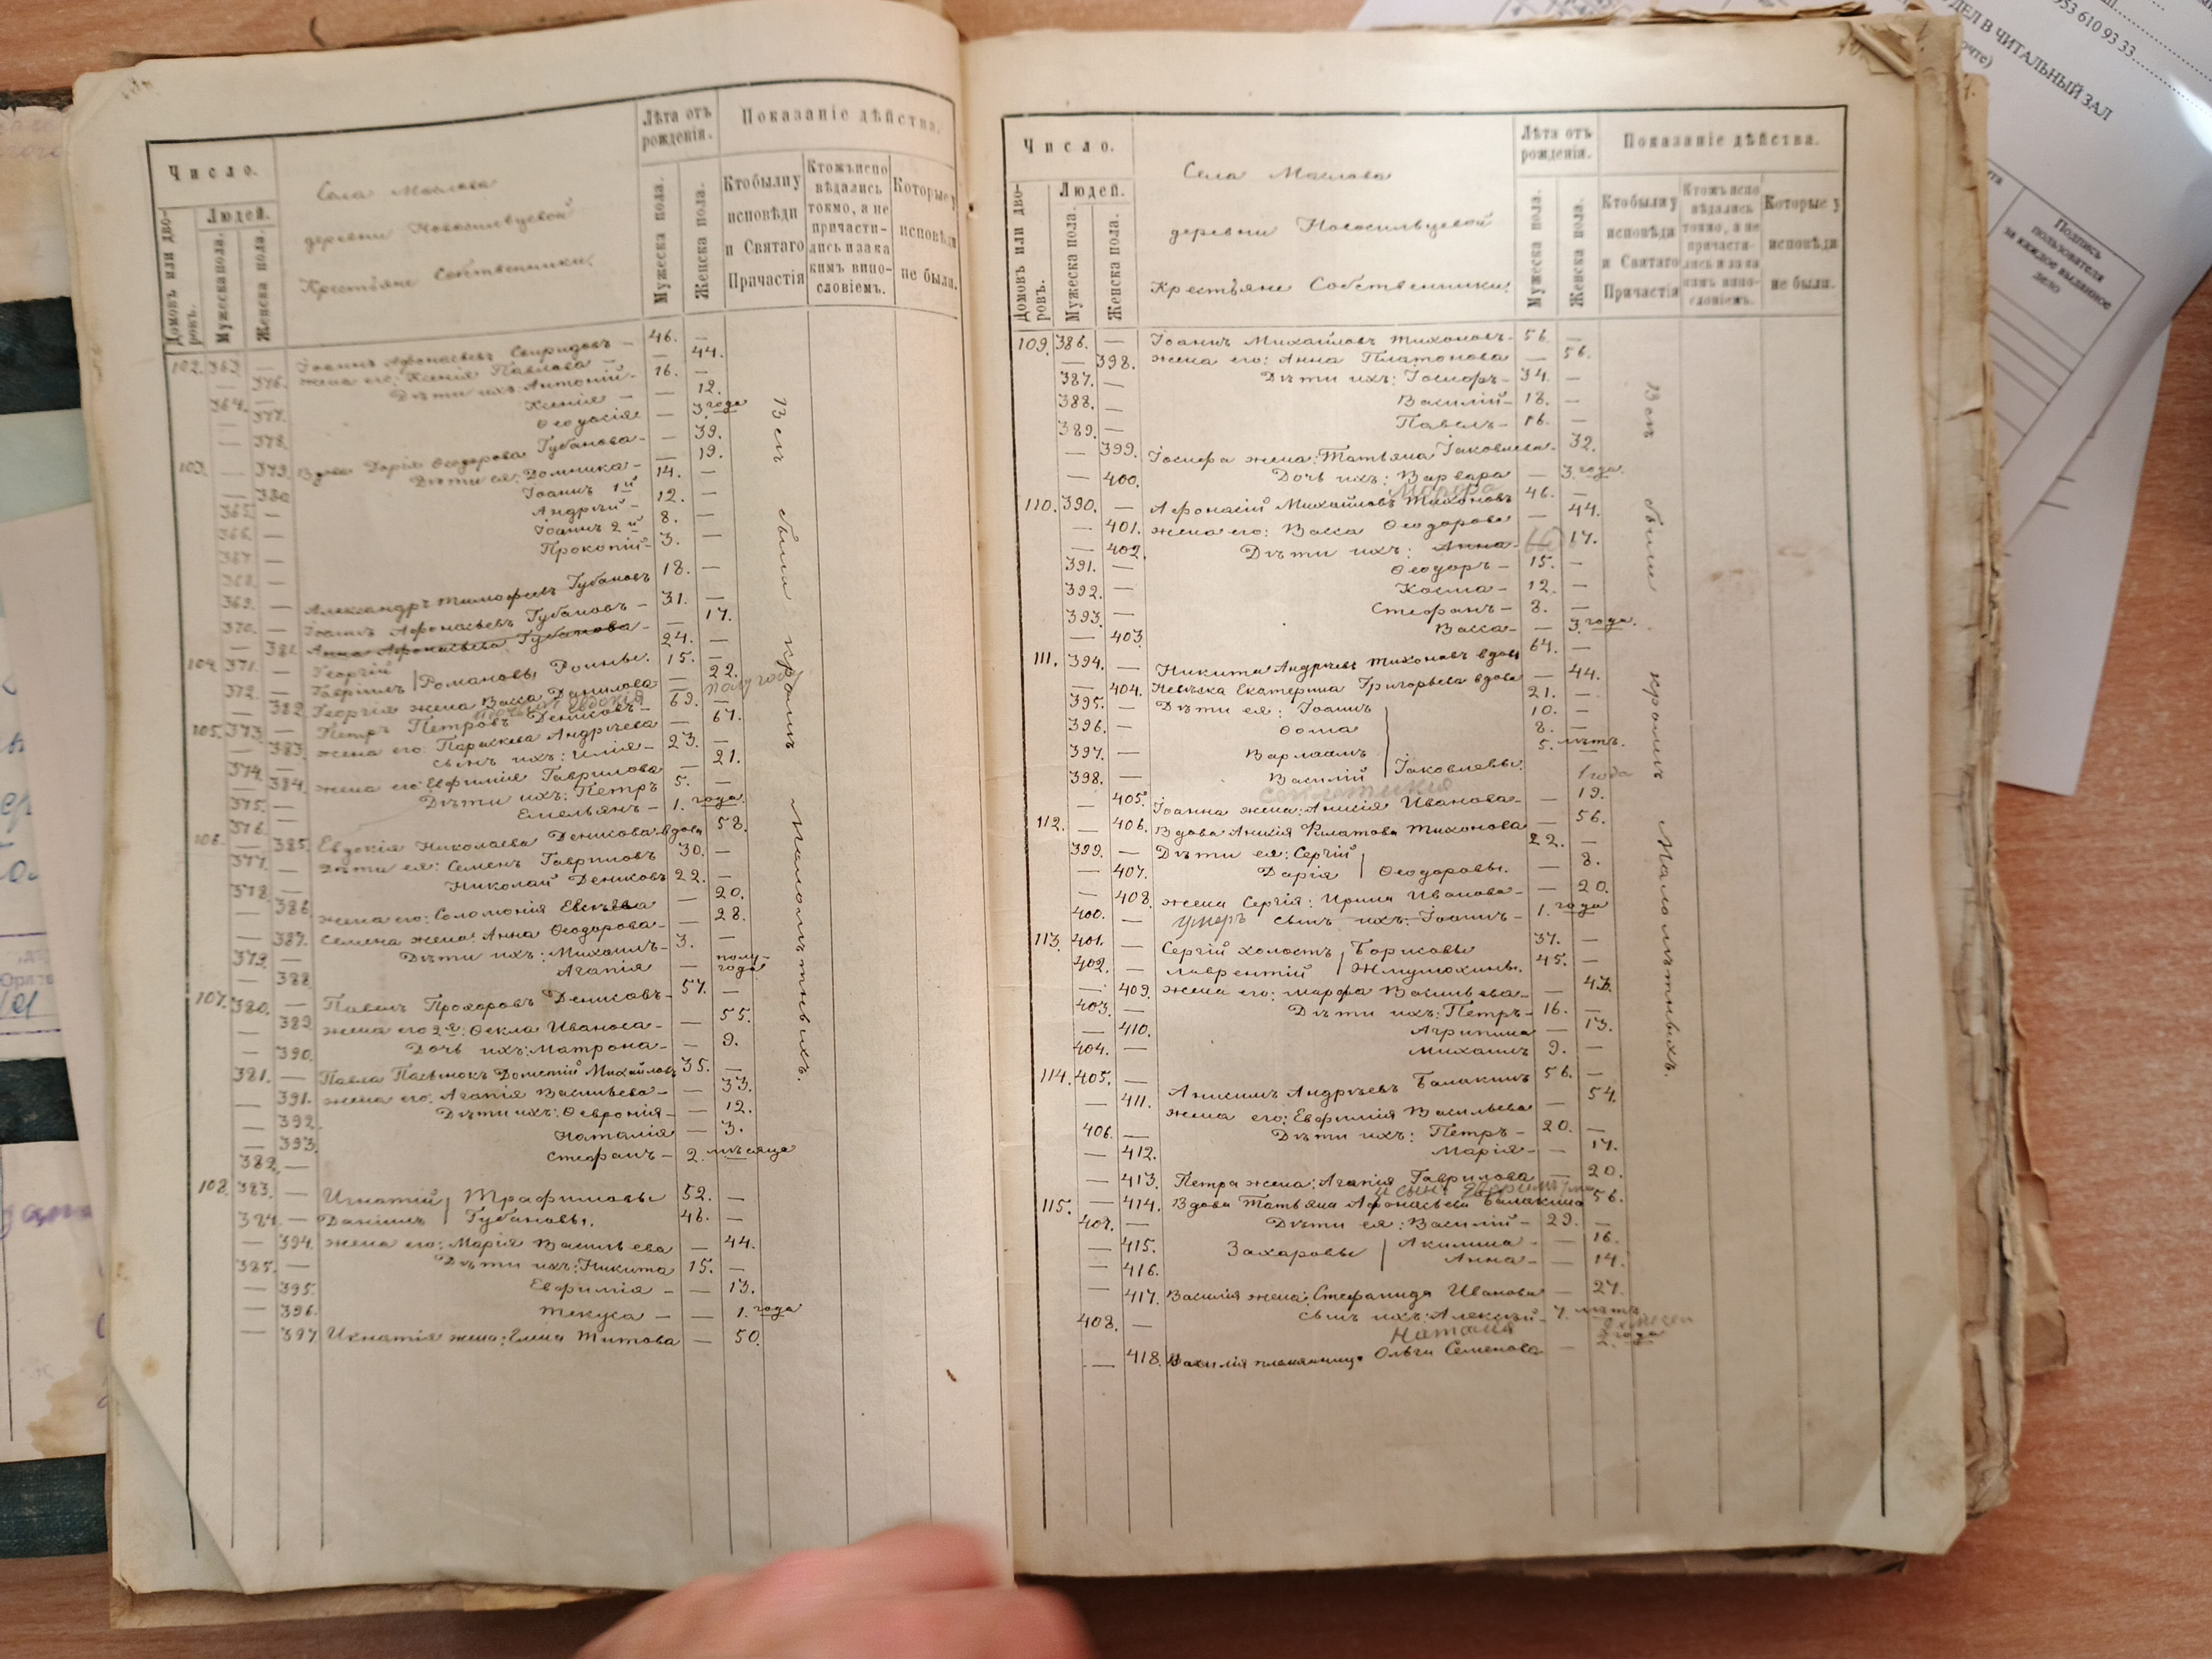 Число.
Домовъ или дворовъ.
Людей.
Мужеска пола.
Женска пола.
Села Маслова
деревни Новосильцевой
Крестьяне Собственники.
Лѣта отъ рожденія.
Мужеска пола.
Женска пола.
Показаніе дѣйства.
Кто были у исповѣди и Святаго Причастія
Кто жъ исповѣдались токмо, а не причастились и за каким вино-словіемъ.
Которые у исповѣди не были.
102. 363. — Іоаннъ Афонасьевъ Свиридовъ — 46. —
— 376. жена его: Ксенія Павлова — 44.
364. — Дѣти ихъ: Антоній — 16. —
— 377. Ксенія — — 12.
— 378. Ѳеодосія — — 3 года
103. — 379. Вдова Дарія Ѳеодорова Губанова — — 39.
— 380 Дѣти ея: Домника — — 19.
365. — Іоаннъ 1й 14. —
366. — Андрей — 12. —
367 — Іоаннъ 2й 8. —
368. — Прокопій — 3. —
369. — Александръ Тимофеевъ Губановъ 18. —
370. — Іоаннъ Афонасьевъ Губановъ — 31. —
— 381. Анна Афонасьева Губанова — — 17.
104. 371. — Георгій 24. —
372. — Гавріилъ Романовы 15. —
— 382 Георгія жена Васса Данилова — 22.
полугода
105. 373. — Петръ Петровъ Дениковъ — 69. —
— 383. жена его: Параскева Андреева — 67.
374. — сынъ ихъ: Илія — 23. —
— 384. жена его: Евфимія Гаврилова — 21.
375. — Дѣти ихъ: Петръ 5. —
376. — Емельянъ — 1. года.
106. — 385. Евдокія Николаева Деникова вдова 58.
377. — Дѣти ея: Семенъ Гавриловъ 30. —
378. — Николай Дениковъ 22. —
— 386. жена его: Соломонія — 20.
— 387. Семена жена: Анна Ѳеодорова — — 28.
379. — Дѣти ихъ: Михаилъ — 3. —
— 388. Агапія — полу-года
107. 380. — Павелъ Прохоровъ Дениковъ — 57. —
— 389. жена его 2я: Ѳекла Иванова — — 55.
— 390. Дочь ихъ: Матрона — — 9.
381. — Павла Пасынокъ Дометій Михайловъ 35. —
— 391. жена его: Агапія Васильева — — 33.
— 392. Дѣти ихъ: Ѳевронія — — 12.
— 393. Наталія — 3.
382. — Стефанъ — 2. мѣсяца
108. 383. — Игнатій Трафимовы 52. —
384. — Даніилъ Губановы. 46. —
— 394. жена его: Марія Васильева — 44.
385. — Дѣти ихъ: Никита 15. —
— 395. Евфимія — — 13.
— 396. Текуса — — 1. года
— 397 Икнатія жена: Елена Титова — 50.
Всѣ были кромѣ малолѣтныхъ.
Число.
Домовъ или дворовъ.
Людей.
Мужеска пола.
Женска пола.
Села Маслова
деревни Новосильцевой
Крестьяне Собственники.
Лѣта отъ рожденія.
Мужеска пола.
Женска пола.
Показаніе дѣйства.
Кто были у исповѣди и Святаго Причастія
Кто жъ исповѣдались токмо, а не причастились и за каким вино-словіемъ.
Которые у исповѣди не были.
109. 386. — Іоаннъ Михайловъ Тихоновъ — 56. —
— 398. жена его: Анна Платонова — 56.
387. — Дѣти ихъ: Іосифъ — 34. —
388. — Василій — 18. —
389. — Павелъ — 16. —
— 399. Іосифа жена: Татьяна Іаковлева — 32.
— 400. Дочь ихъ: Варвара — 3 года
110. 390. — Афонасій Михайловъ Тихоновъ 46. —
— 401. жена его: Васса Ѳеодорова — 44.
— 402. Дѣти ихъ: Анна — 17.
391. — Ѳеодоръ — 15. —
392. — Косма — 12. —
393. — Стефанъ — 8. —
— 403. Васса — — 3. года.
111. 394. — Никита Андреевъ Тихоновъ вдов 64. —
— 404. Невѣска Екатерина Григорьева вдова — 44.
395. — Дѣти ея: Іоаннъ 21. —
396. — Ѳома 10. —
397. — Варлаамъ 8. —
398. — Василій Іаковлевы. 5. лѣтъ.
1 года
— 405. Іоанна жена: Анисія Иванова — — 19.
112. — 406. Вдова Аникія Филатова Тихонова — 56.
399. — Дѣти ея: Сергій 22. —
— 407. Дарія Ѳеодоровы. — 8.
— 408. жена Сергія: Ирина Иванова — — 20.
400. — умеръ сынъ ихъ: Іоаннъ — 1. года
113. 401. — Сергій холостъ Борисовы 37. —
402. — Лаврентій Жмулюхины. 45. —
— 409. жена его: Марфа Васильева — — 43.
403. — Дѣти ихъ: Петръ — 16. —
— 410. Агрипина — 13.
404. — Михаилъ 9. —
114. 405. — Анисимъ Андреевъ Балакинъ 56. —
— 411. жена его: Евфимія Васильева — 54.
406. — Дѣти ихъ: Петръ — 20. —
— 412. Марія — — 17.
— 413. Петра жена: Агапія Гаврилова — 20.
115. — 414. Вдова Татьяна Афонасьева Балакина 56.
407. — Дѣти ея: Василій — 29. —
— 415. Захаровы Акилина — — 16.
— 416. Анна — — 14.
— 417. Василія жена: Стефанида Иванова — 27.
408. — сынъ ихъ: Алексѣй — 7. лѣтъ
Наталія
— 418. Василія племянница Ольга Семенова — 2 года
Всѣ были кромѣ Малолѣтныхъ.
ДЕЛ В ЧИТАЛЬНЫЙ ЗАЛ
953 610 93 33
Подпись
пользователя
за каждое выданное
дело